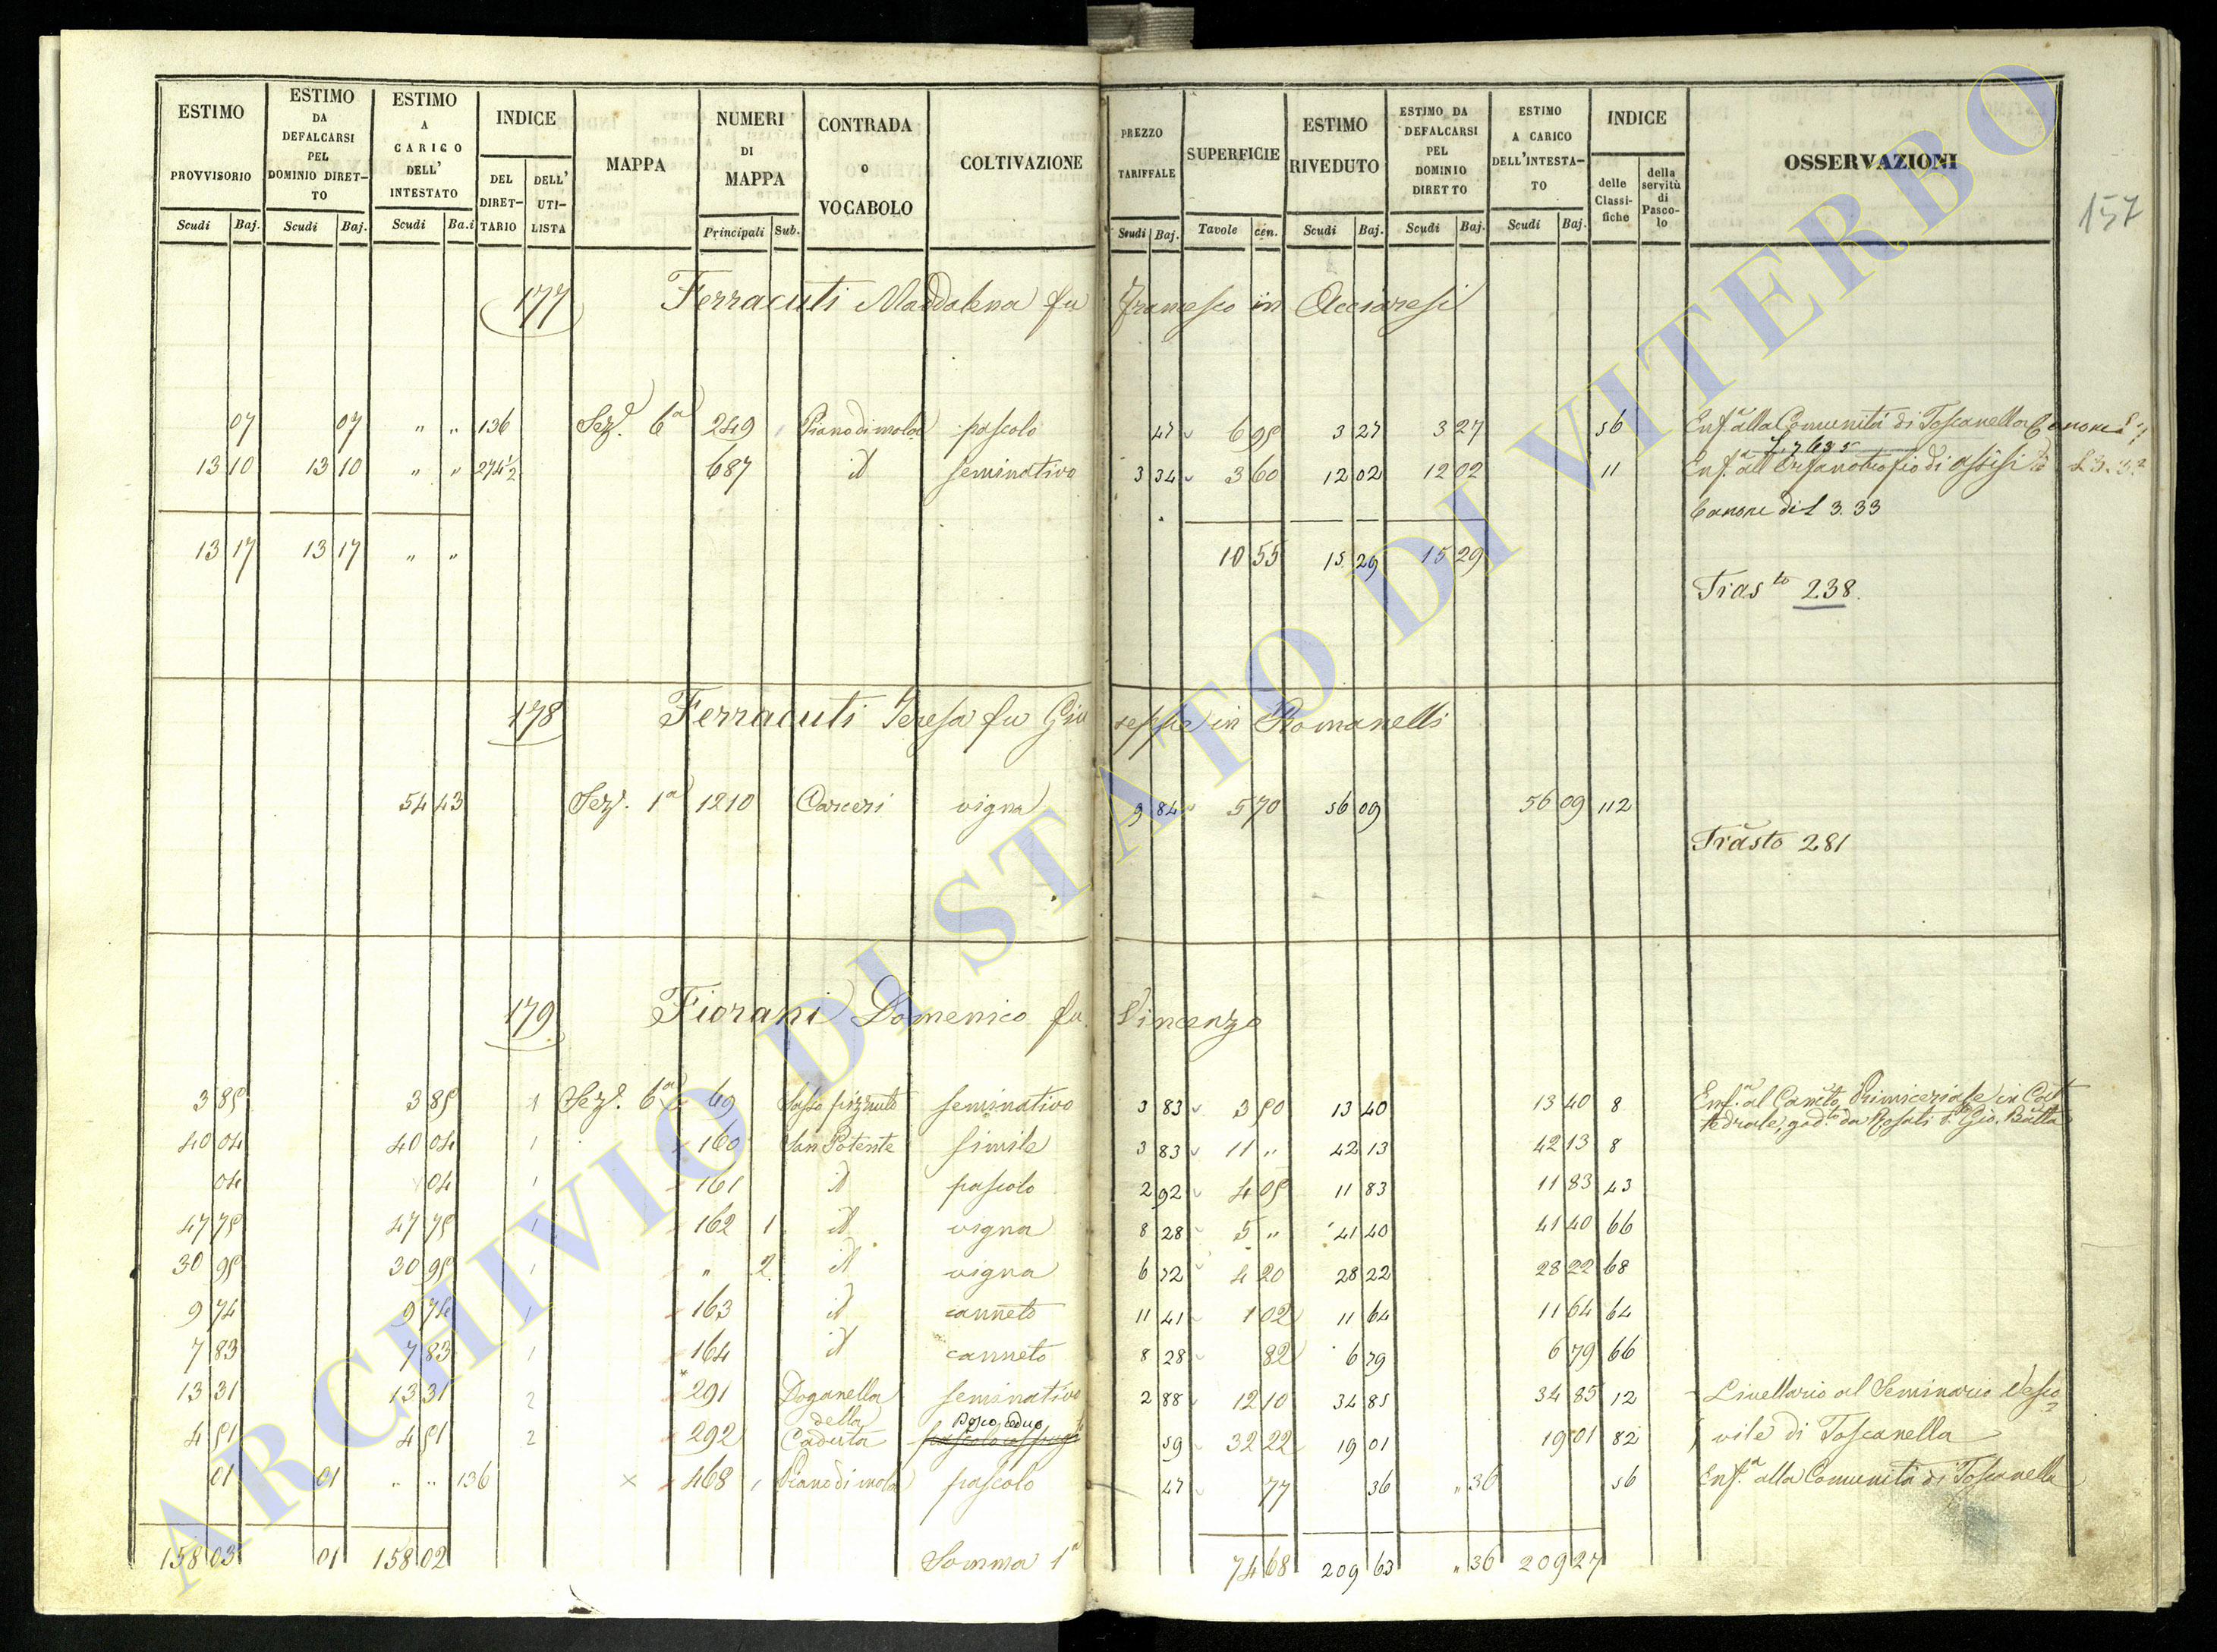 157
ESTIMO PROVVISORIO Scudi Baj.
ESTIMO DA DEFALCARSI PEL DOMINIO DIRETTO Scudi Baj.
ESTIMO A CARICO DELL' INTESTATO Scudi Ba.i
INDICE DEL DIRETTARIO DELL' UTILISTA
MAPPA
NUMERI DI MAPPA Principali Sub.
CONTRADA O VOCABOLO
COLTIVAZIONE
PREZZO TARIFFALE Scudi Baj.
SUPERFICIE Tavole cen.
ESTIMO RIVEDUTO Scudi Baj.
ESTIMO DA DEFALCARSI PEL DOMINIO DIRETTO Scudi Baj.
ESTIMO A CARICO DELL'INTESTATO Scudi Baj.
INDICE delle Classifiche della servitù di Pascolo
OSSERVAZIONI
177 Ferracuti Maddalena fu Francesco in Acciaresi
07 07 " " 136 Sez.e 6a 249 Piano di mola pascolo 47 6 95 3 27 3 27 56 Enf.a alla Comunità di Toscanella Canone
13 10 13 10 " " 274½ 687 id seminativo 3 34 3 60 12 02 12 02 11 Enf.a all'Orfanotrofio di Assisi
Canone di £ 3.33
13 17 13 17 " " 10 55 15 29 15 29
Tras.to 238.
178 Ferracuti Teresa fu Giuseppe in Romanelli
54 43 Sez.e 1a 1210 Carceri vigna 9 84 5 70 56 09 56 09 112
Trasto 281
179 Fiorani Domenico fu Vincenzo
3 85 3 85 1 Sez.e 6a 69 Sasso pizzuto seminativo 3 83 3 50 13 40 13 40 8 Enf.a al Can.to Primiceriale in Cat
tedrale, god.to da Rosati D. Gio. Batta
40 04 40 04 1 160 San Potente simile 3 83 11 " 42 13 42 13 8
04 04 1 161 id pascolo 2 92 4 05 11 83 11 83 43
47 75 47 75 1 162 1 id vigna 8 28 5 " 41 40 41 40 66
30 95 30 95 1 " 2 id vigna 6 72 4 20 28 22 28 22 68
9 74 9 74 1 163 id canneto 11 41 1 02 11 64 11 64 64
7 83 7 83 1 164 id canneto 8 28 82 6 79 6 79 66
13 31 13 31 2 291 Doganella seminativo 2 88 12 10 34 85 34 85 12 Livellario al Seminario Vesco
4 51 4 51 2 292 della Caduta Bosco ceduo 59 32 22 19 01 19 01 82 vile di Toscanella
01 01 " " 136 × 468 Piano di mola pascolo 47 77 36 " 36 56 Enf.a alla Comunità di Toscanella
158 03 01 158 02 Somma 1a 74 68 209 63 " 36 209 27
ARCHIVIO DI STATO DI VITERBO